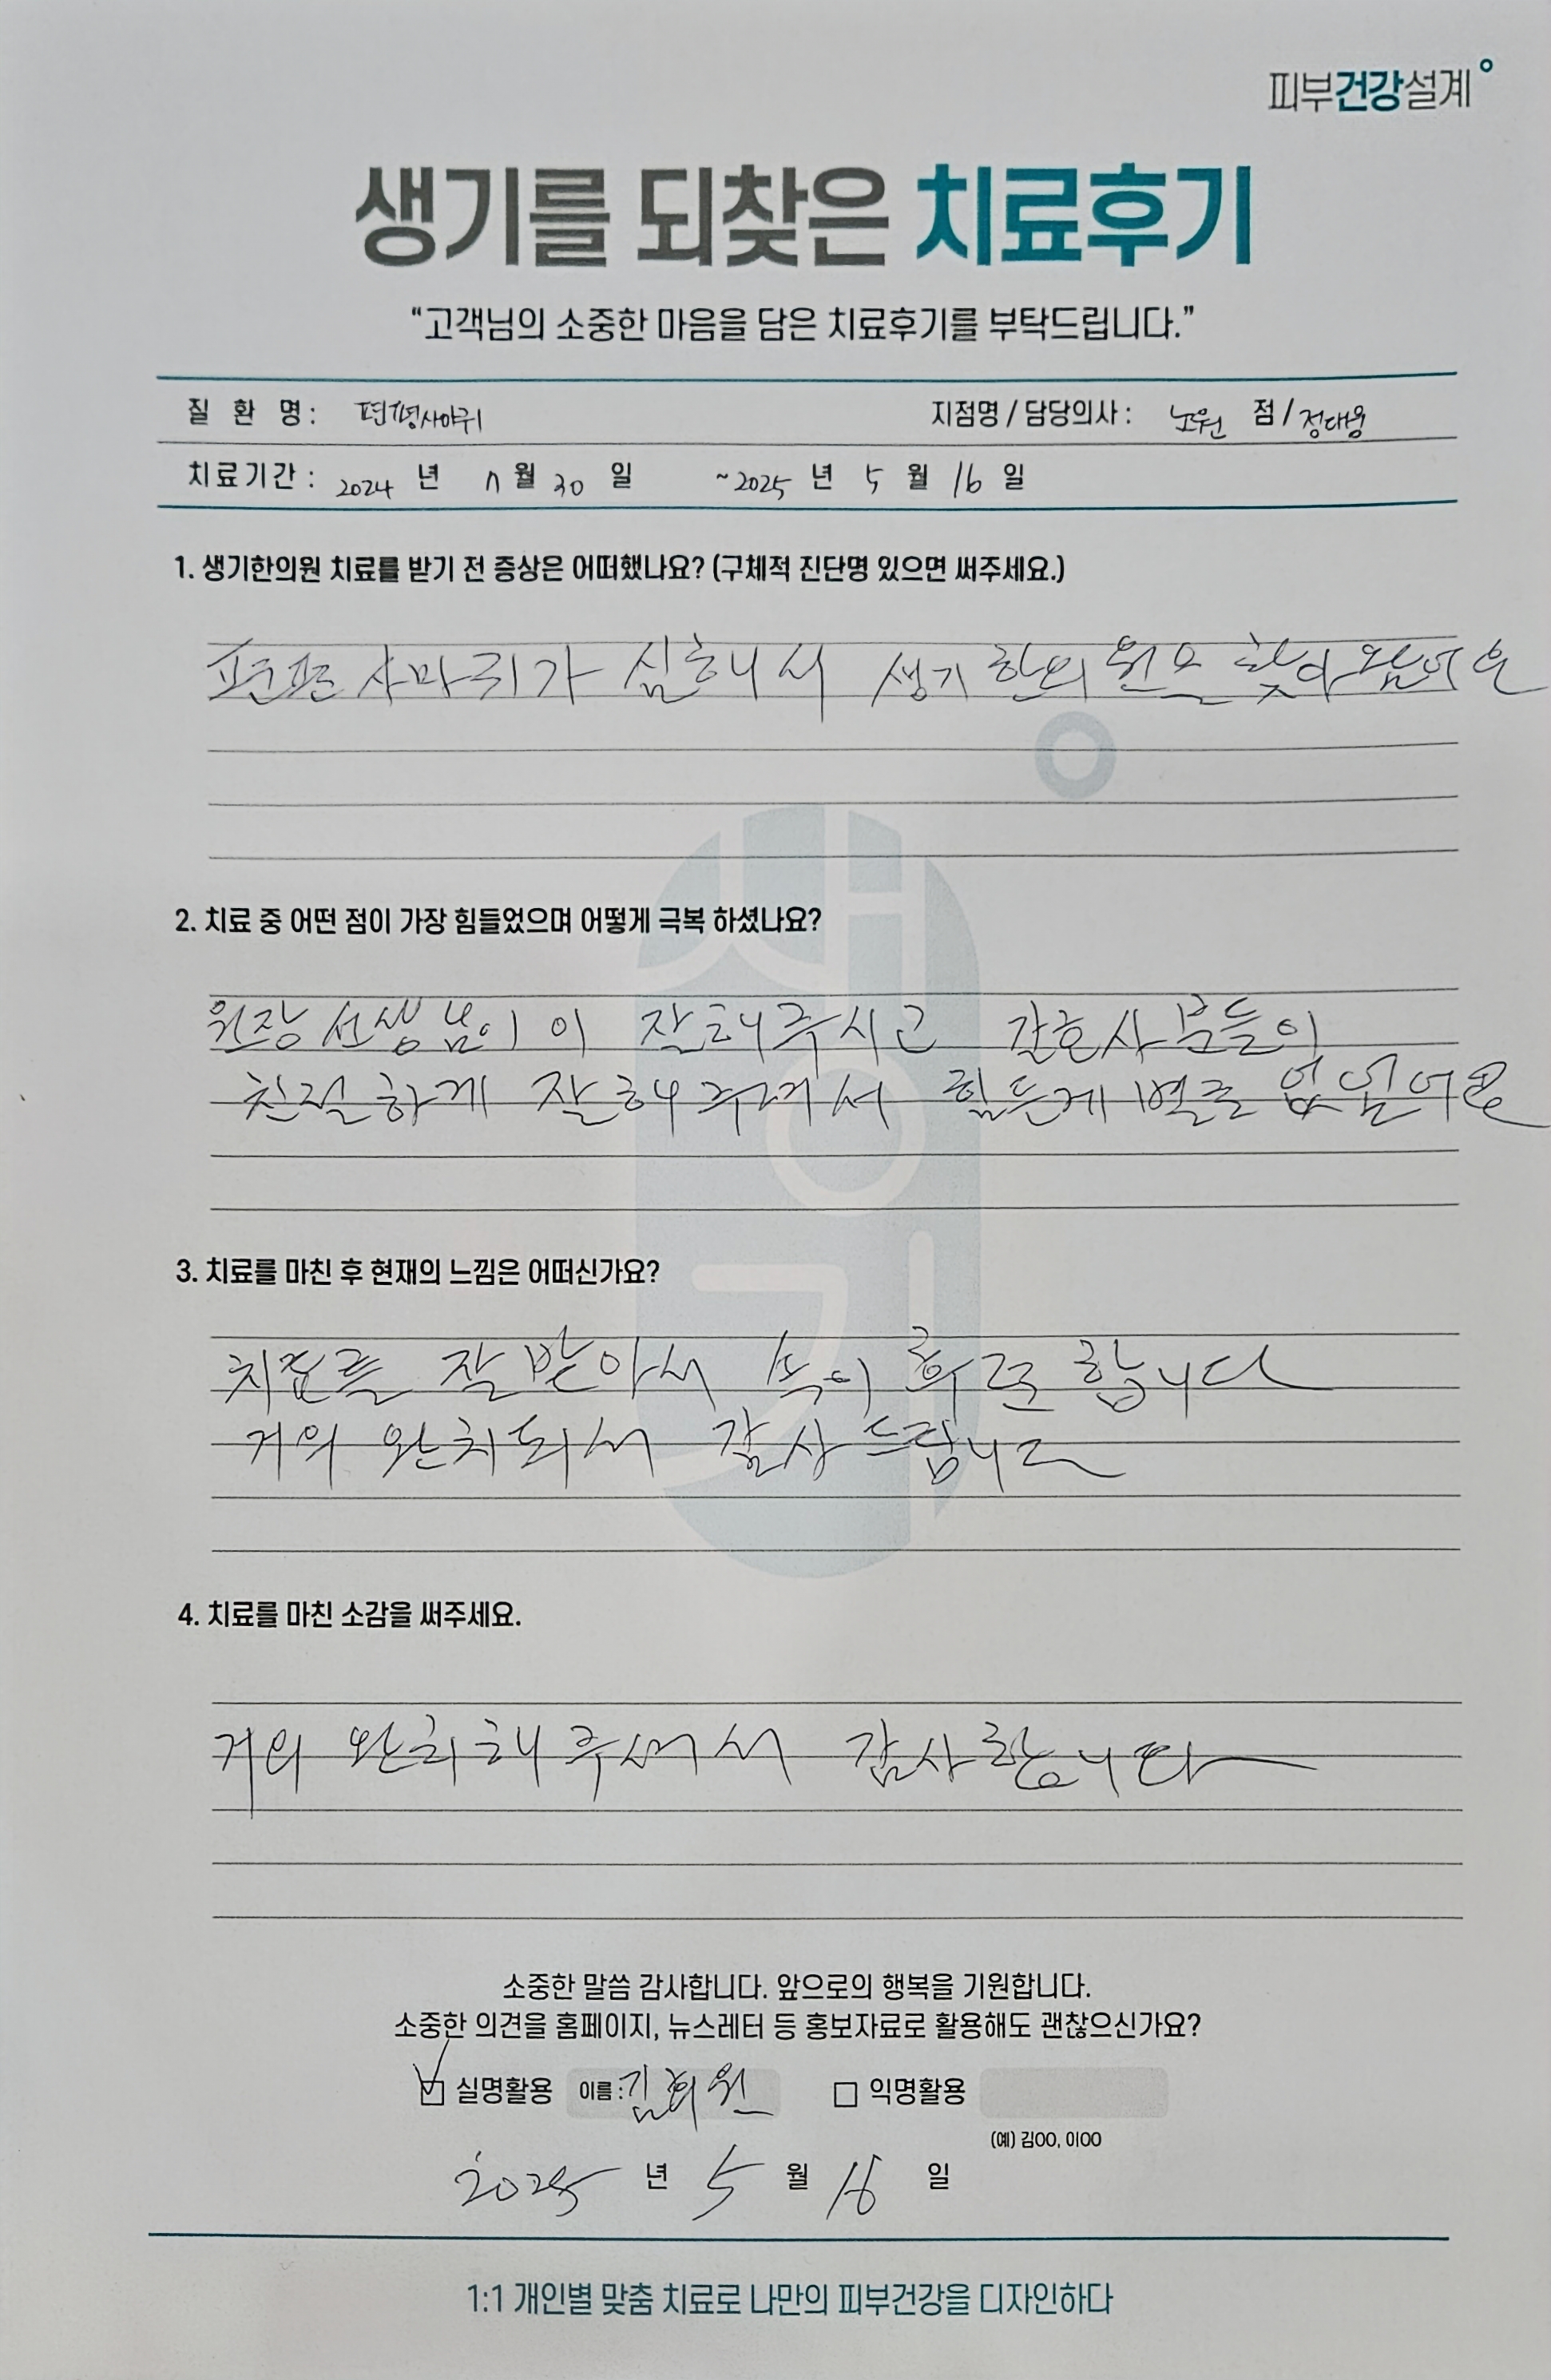 피부건강설계
생기를 되찾은 치료후기
“고객님의 소중한 마음을 담은 치료후기를 부탁드립니다.”
질 환 명 : 편평사마귀 지점명 / 담당의사 : 노원 점 / 정대웅
치료기간 : 2024 년 월 30 일 ~ 2025 년 5 월 16 일
1. 생기한의원 치료를 받기 전 증상은 어떠했나요? (구체적 진단명 있으면 써주세요.)
사마귀가 심해서 생기한의원으 찾아왔어요
2. 치료 중 어떤 점이 가장 힘들었으며 어떻게 극복 하셨나요?
원장 선생님이 잘해주시고 간호사분들이
친절하게 잘해주셔서 힘든게 별로 없었어요
3. 치료를 마친 후 현재의 느낌은 어떠신가요?
치료를 잘 받아서 속이 후련합니다
거의 완치되서 감사드립니다
4. 치료를 마친 소감을 써주세요.
거의 완치해주셔서 감사합니다
소중한 말씀 감사합니다. 앞으로의 행복을 기원합니다.
소중한 의견을 홈페이지, 뉴스레터 등 홍보자료로 활용해도 괜찮으신가요?
실명활용 이름 : 김희원 익명활용
(예) 김OO, 이OO
2025 년 5 월 16 일
1:1 개인별 맞춤 치료로 나만의 피부건강을 디자인하다